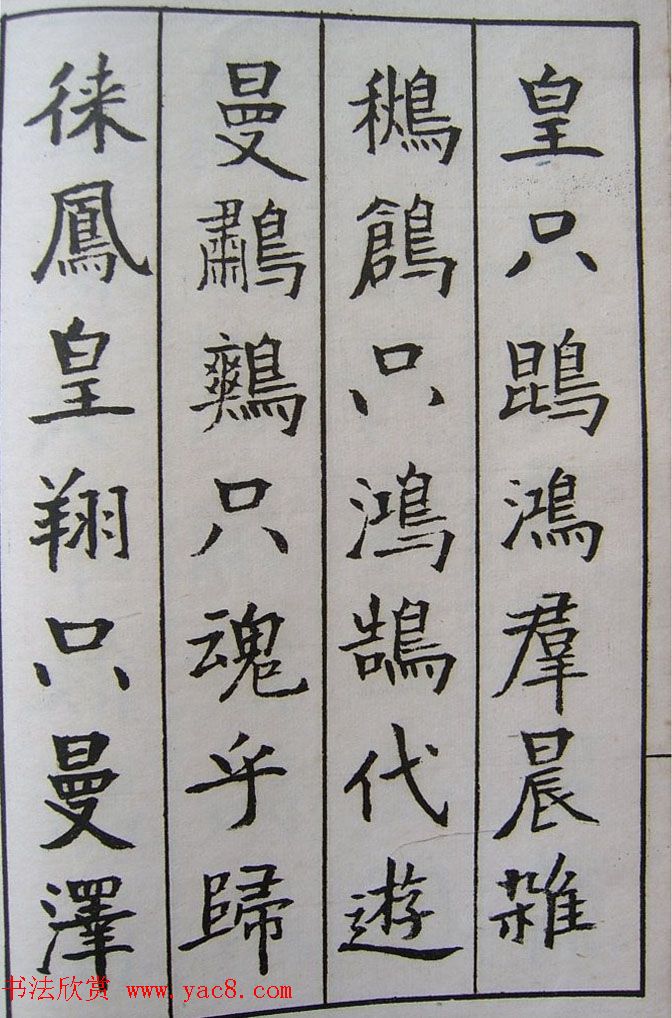 皇只鵾鴻羣晨雜
鶖鶬只鴻鵠代遊
曼鷫鷞只魂乎歸
徠鳳皇翔只曼澤
书法欣赏 www.yac8.com